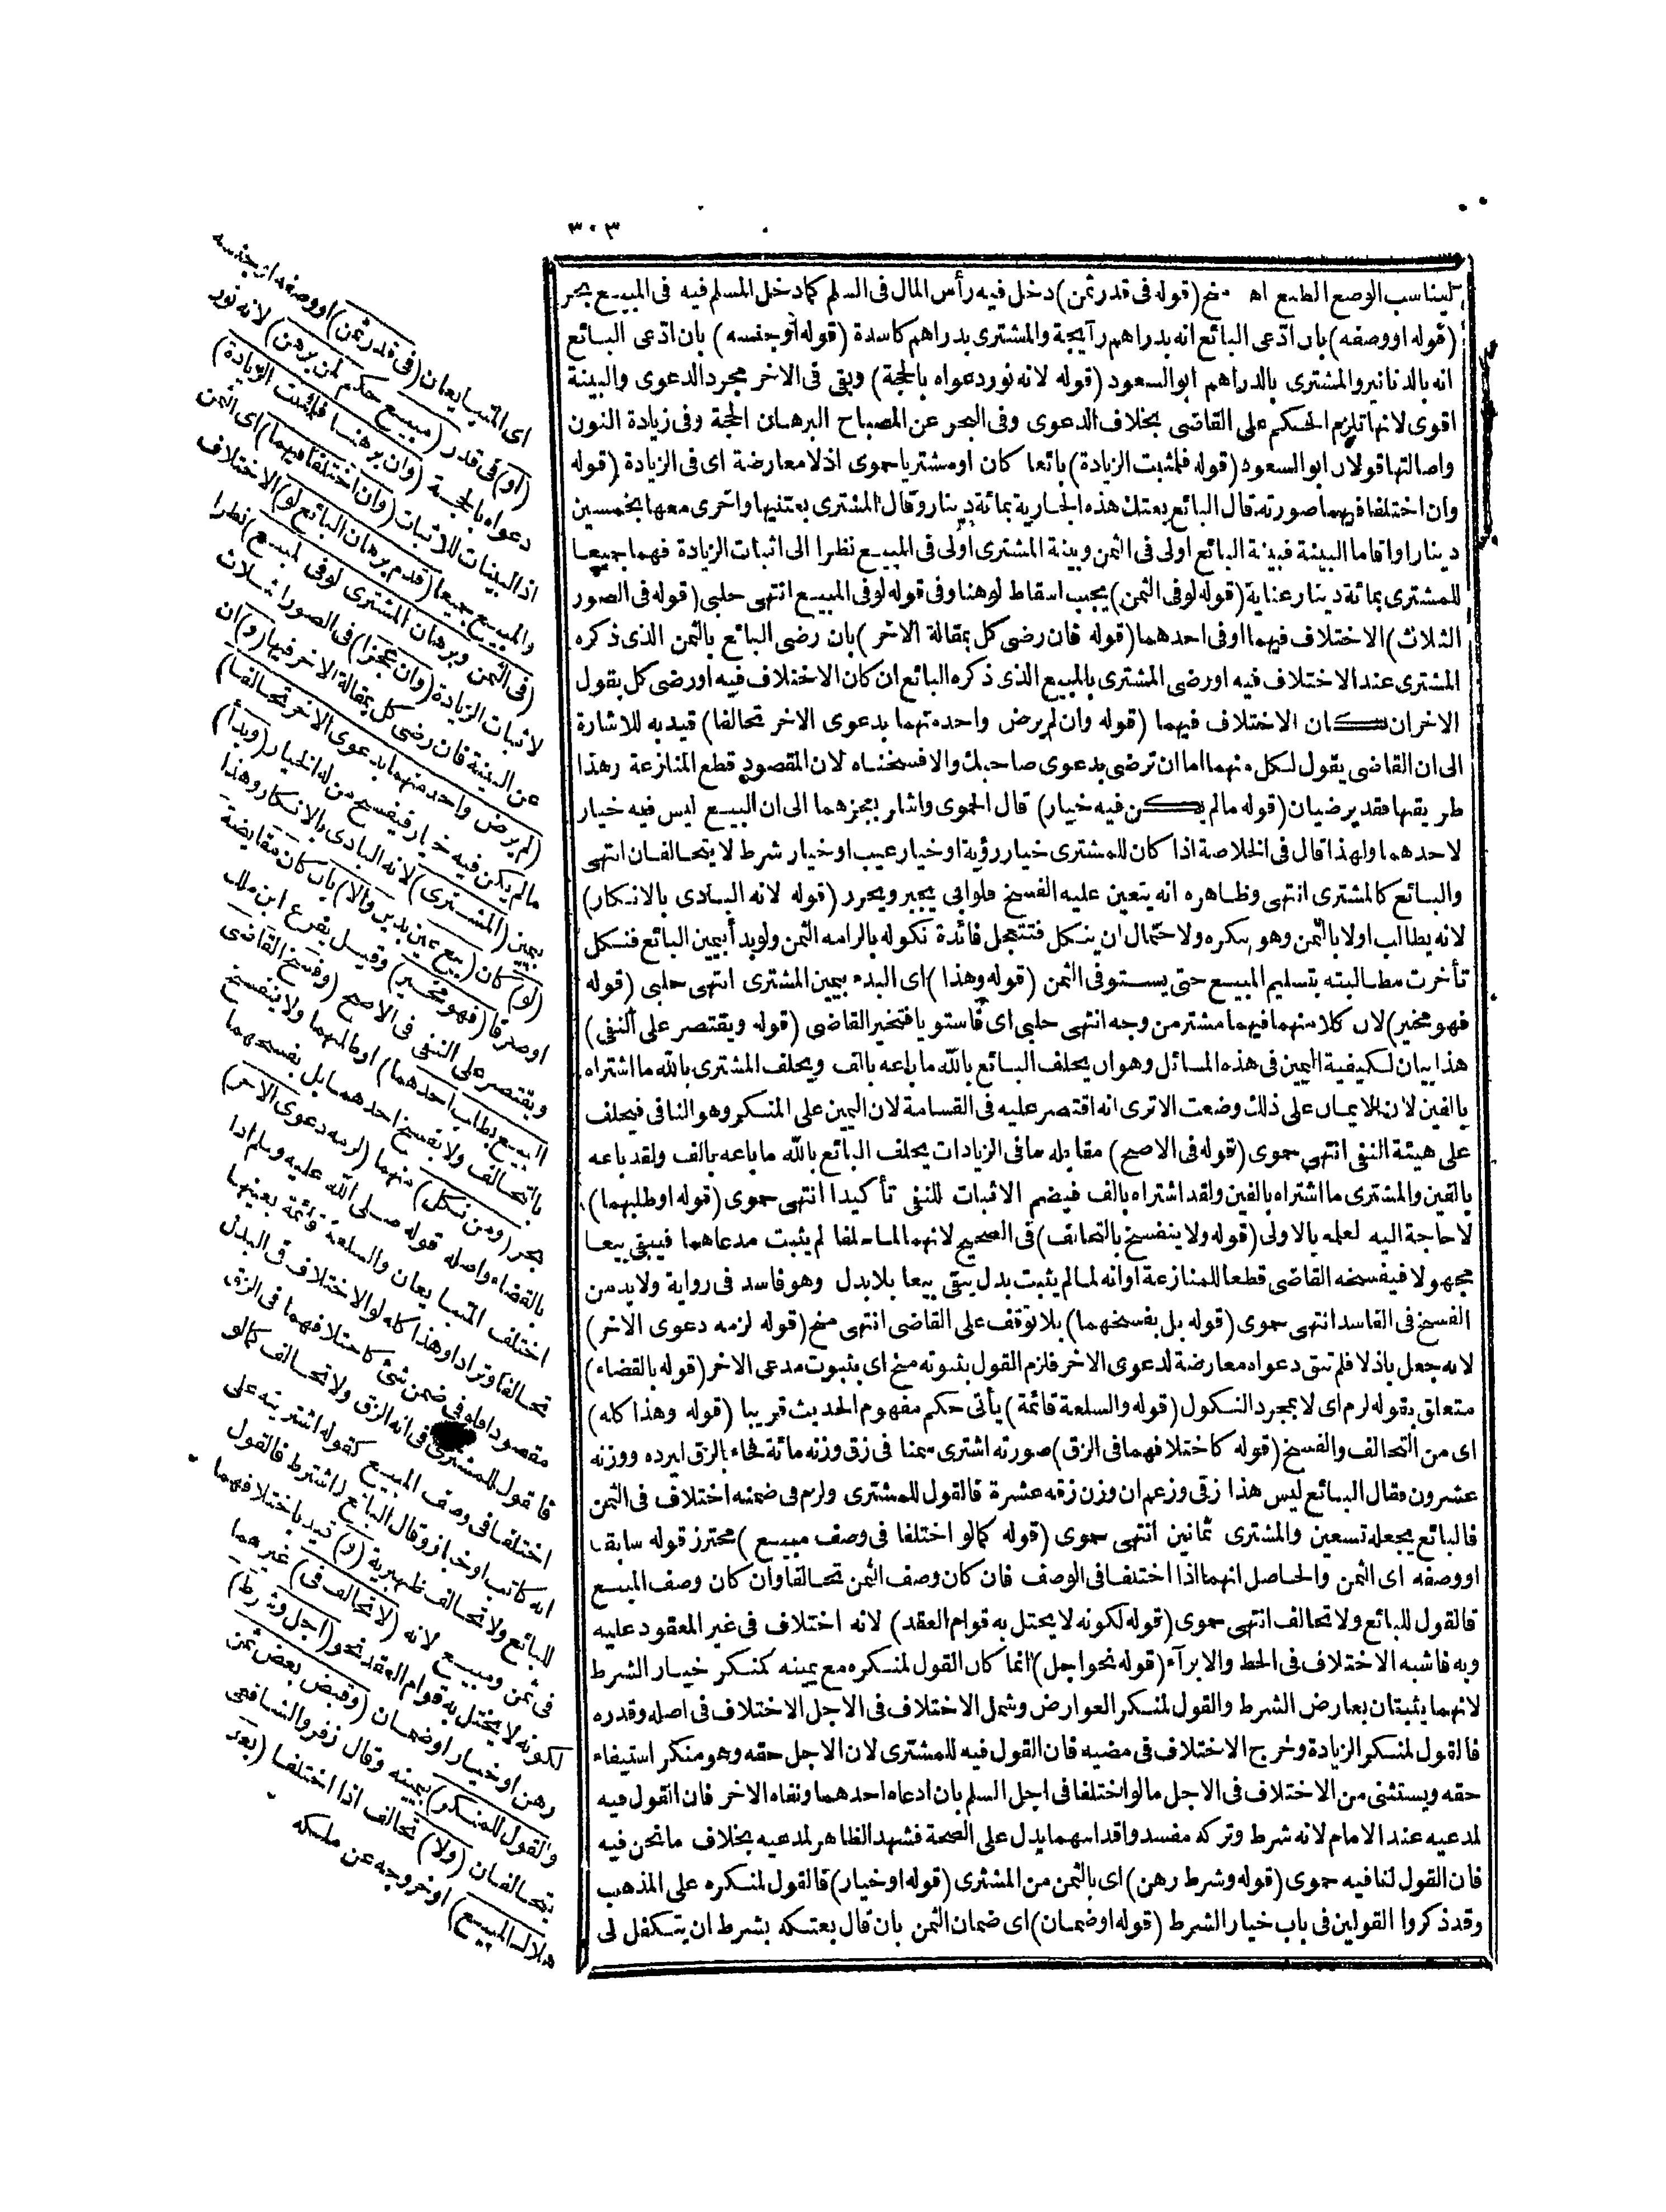 ٣٠٣
ليناسب الوضع الطبع اه منح (قوله فى قدر ثمن) دخل فيه رأس المال فى السلم كما دخل المسلم فيه فى المبيع بحر
(قوله اووصفه) بان ادّعى البائع انه بدراهم رآيجة والمشترى بدراهم كاسدة (قوله أوجنسه) بان ادّعى البائع
انه بالدنانير والمشترى بالدراهم ابوالسعود (قوله لانه نور دعواه بالحجة) وبقى فى الاخر مجرد الدعوى والبينة
اقوى لانها تلزم الحكم على القاضى بخلاف الدعوى وفى البحر عن المصباح البرهان الحجة وفى زيادة النون
واصالتها قولان ابوالسعود (قوله فلمثبت الزيادة) بائعا كان اومشتريا حموى اذلا معارضة اى فى الزيادة (قوله
وان اختلفا فيهما صورته قال البائع بعتك هذه الجارية بمائة دينار وقال المشترى بعتنيها واخرى معها بخمسين
دينارا واقاما البينة فبينة البائع اولى فى الثمن وبينة المشترى اولى فى المبيع نظرا الى اثبات الزيادة فهما جميعا
للمشترى بمائة دينار عناية (قوله لوفى الثمن) يجب اسقاط لوهنا وفى قوله لوفى المبيع انتهى حلبى (قوله فى الصور
الثلاث) الاختلاف فيهما اوفى احدهما (قوله فان رضى كل بمقالة الاخر) بان رضى البائع بالثمن الذى ذكره
المشترى عند الاختلاف فيه اورضى المشترى بالمبيع الذى ذكره البائع ان كان الاختلاف فيه اورضى كل بقول
الاخران كان الاختلاف فيهما (قوله وان لم يرض واحد منهما بدعوى الاخر تحالفا) قيد به للاشارة
الى ان القاضى يقول لكل منهما اما ان ترضى بدعوى صاحبك والا فسخناه لان المقصود قطع المنازعة وهذا
طريقها فقد يرضيان (قوله مالم يكن فيه خيار) قال الحموى واشار بعجزهما الى ان البيع ليس فيه خيار
لاحدهما ولهذا قال فى الخلاصة اذا كان للمشترى خيار رؤية اوخيار عيب اوخيار شرط لا يتحالفان انتهى
والبائع كالمشترى انتهى وظاهره انه يتعين عليه الفسخ فلوابى يجبر ويحرر (قوله لانه البادى بالانكار)
لانه يطالب اولا بالثمن وهو ينكره ولاحتمال ان ينكل فتتعجل فائدة نكوله بالزامه الثمن ولوبدأ بيمين البائع فنكل
تأخرت مطالبته بتسليم المبيع حتى يستوفى الثمن (قوله وهذا) اى البدء بيمين المشترى انتهى حلبى (قوله
فهو مخير) لان كلا منهما فيهما مشتر من وجه انتهى حلبى اى فاستويا فتخير القاضى (قوله ويقتصر على النفى)
هذا بيان لكيفية اليمين فى هذه المسائل وهو ان يحلف البائع بالله ما باعه بالف ويحلف المشترى بالله ما اشتراه
بالفين لان الايمان على ذلك وضعت الاترى انه اقتصر عليه فى القسامة لان اليمين على المنكر وهو النافى فيحلف
على هيئة النفى انتهى حموى (قوله فى الاصح) مقابله ما فى الزيادات يحلف البائع بالله ما باعه بالف ولقد باعه
بالفين والمشترى ما اشتراه بالفين ولقد اشتراه بالف فيضم الاثبات للنفى تأكيدا انتهى حموى (قوله اوطلبهما)
لاحاجة اليه لعلمه بالاولى (قوله ولا ينفسخ بالتحالف) فى الصحيح لانهما لما حلفا لم يثبت مدعاهما فيبقى بيعا
مجهولا فيفسخه القاضى قطعا للمنازعة اوانه لما لم يثبت بدل يبقى بيعا بلا بدل وهو فاسد فى رواية ولابد من
الفسخ فى الفاسد انتهى حموى (قوله بل بفسخهما) بلا توقف على القاضى انتهى منح (قوله لزمه دعوى الاخر)
لانه جعل باذلا فلم تبق دعواه معارضة لدعوى الاخر فلزم القول بثبوته منح اى بثبوت مدعى الاخر (قوله بالقضاء)
متعلق بقوله لزم اى لا بمجرد النكول (قوله والسلعة قائمة) يأتى حكم مفهوم الحديث قريبا (قوله وهذا كله)
اى من التحالف والفسخ (قوله كاختلافهما فى الزق) صورته اشترى سمنا فى زق وزنه مائة فجاء بالزق ليرده ووزنه
عشرون فقال البائع ليس هذا زقى وزعم ان وزن زقه عشرة فالقول للمشترى ولزم فى ضمنه اختلاف فى الثمن
فالبائع يجعله تسعين والمشترى ثمانين انتهى حموى (قوله كمالو اختلفا فى وصف مبيع) محترز قوله سابقا
اووصفه اى الثمن والحاصل انهما اذا اختلفا فى الوصف فان كان وصف الثمن تحالفا وان كان وصف المبيع
فالقول للبائع ولا تحالف انتهى حموى (قوله لكونه لا يختل به قوام العقد) لانه اختلاف فى غير المعقود عليه
وبه فاشبه الاختلاف فى الحط والابرآء (قوله نحو اجل) انما كان القول لمنكره مع يمينه كمنكر خيار الشرط
لانهما يثبتان بعارض الشرط والقول لمنكر العوارض وشمل الاختلاف فى الاجل الاختلاف فى اصله وقدره
فالقول لمنكر الزيادة وخرج الاختلاف فى مضيه فان القول فيه للمشترى لان الاجل حقه وهو منكر استيفاء
حقه ويستثنى من الاختلاف فى الاجل مالو اختلفا فى اجل السلم بان ادعاه احدهما ونفاه الاخر فان القول فيه
لمدعيه عند الامام لانه شرط وتركه مفسد واقدامهما يدل على الصحة فشهد الظاهر لمدعيه بخلاف ما نحن فيه
فان القول لنافيه حموى (قوله وشرط رهن) اى بالثمن من المشترى (قوله اوخيار) فالقول لمنكره على المذهب
وقد ذكروا القولين فى باب خيار الشرط (قوله اوضمان) اى ضمان الثمن بان قال بعتكه بشرط ان يتكفل لى
اى المتبايعان (فى قدر ثمن) اووصفه اوجنسه
(او) فى قدر (مبيع حكم لمن برهن) لانه نور
دعواه بالحجة (وان برهنا فلمثبت الزيادة)
اذ البينات للاثبات (وان اختلفا فيهما) اى الثمن
والمبيع جميعا (قدم برهان البائع لو) الاختلاف
(فى الثمن وبرهان المشترى لوفى المبيع) نظرا
لاثبات الزيادة (وان عجزا) فى الصور الثلاث
عن البينة فان رضى كل بمقالة الاخر فبها (و) ان
(لم يرض واحد منهما بدعوى الاخر تحالفا)
مالم يكن فيه خيار فيفسخ من له الخيار (وبدأ)
بيمين (المشترى) لانه البادى بالانكار وهذا
(لو) كان (بيع عين بدين والا) بان كان مقايضة
اوصرفا (فهو مخير) وقيل يقرع ابن ملك
ويقتصر على النفى فى الاصح (وفسخ القاضى
البيع بطلب احدهما) اوطلبهما ولا ينفسخ
بالتحالف ولا بفسخ احدهما بل بفسخهما
بحر (ومن نكل) منهما (لزمه دعوى الاخر)
بالقضاء واصله قوله صلى الله عليه وسلم اذا
اختلف المتبايعان والسلعة قائمة بعينها
تحالفا وترادا وهذا كله لو الاختلاف فى البدل
مقصودا فلو فى ضمن شئ كاختلافهما فى الزق
فالقول للمشترى فى انه الزق ولا تحالف كمالو
اختلفا فى وصف المبيع كقوله اشتريته على
انه كاتب اوخباز وقال البائع لم اشترط فالقول
للبائع ولا تحالف ظهيرية (و) قيد باختلافهما
فى ثمن ومبيع لانه (لا تحالف فى) غيرهما
لكونه لا يختل به قوام العقد نحو (اجل وشرط)
رهن اوخيار اوضمان (وقبض بعض ثمن
والقول للمنكر) بيمينه وقال زفر والشافعى
يتحالفان (ولا) تحالف اذا اختلفا (بعد
هلاك المبيع) اوخروجه عن ملكه